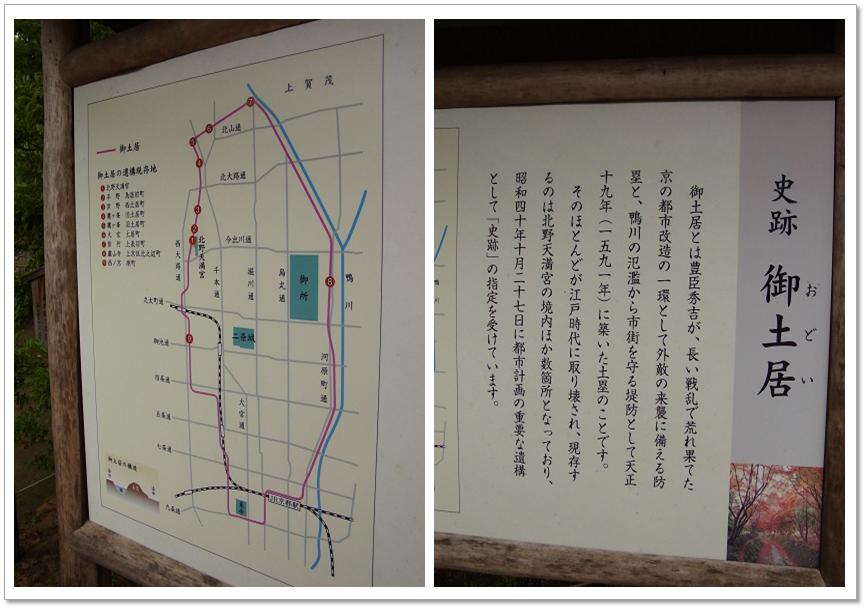 上賀茂
御土居
御土居の遺構現存地
北野天満宮
北山通
北大路通
今出川通
北野天満宮
西大路通
千本通
堀川通
烏丸通
御所
鴨川
丸太町通
二条城
御池通
河原町通
四条通
大宮通
五条通
七条通
御土居の構造
JR京都駅
九条通
東寺
史跡 御土居
おどい
御土居とは豊臣秀吉が、長い戦乱で荒れ果てた
京の都市改造の一環として外敵の来襲に備える防
塁と、鴨川の氾濫から市街を守る堤防として天正
十九年(一五九一年)に築いた土塁のことです。
そのほとんどが江戸時代に取り壊され、現存す
るのは北野天満宮の境内ほか数箇所となっており、
昭和四十年十月二十七日に都市計画の重要な遺構
として「史跡」の指定を受けています。